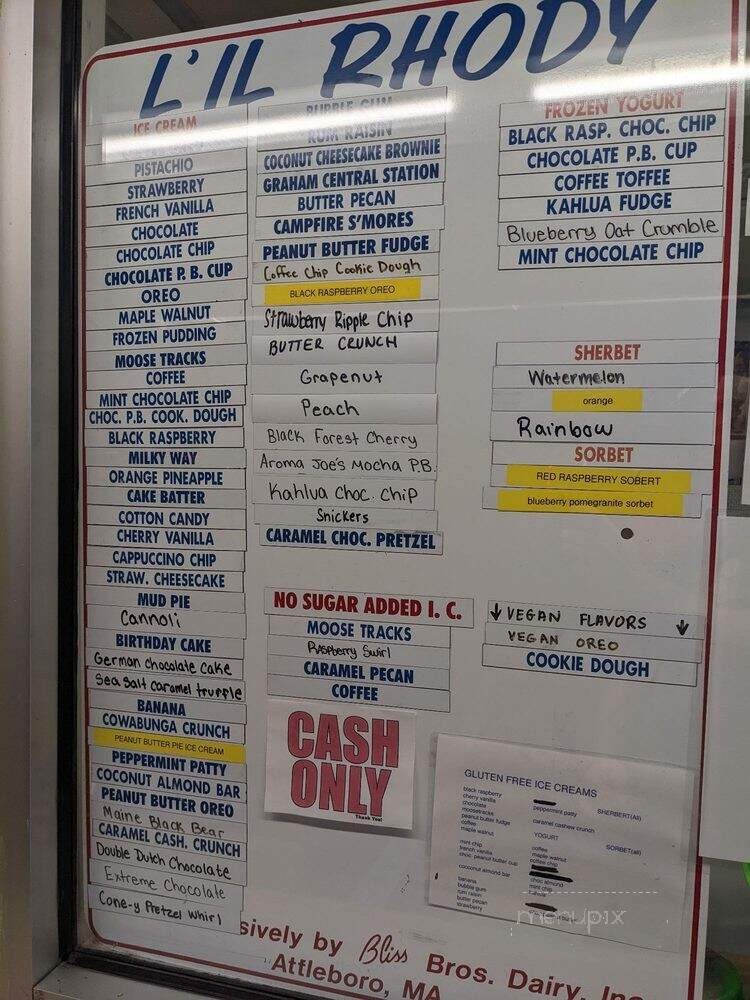 L'IL RHODY
ICE CREAM
PISTACHIO
STRAWBERRY
FRENCH VANILLA
CHOCOLATE
CHOCOLATE CHIP
CHOCOLATE P. B. CUP
OREO
MAPLE WALNUT
FROZEN PUDDING
MOOSE TRACKS
COFFEE
MINT CHOCOLATE CHIP
CHOC. P.B. COOK. DOUGH
BLACK RASPBERRY
MILKY WAY
ORANGE PINEAPPLE
CAKE BATTER
COTTON CANDY
CHERRY VANILLA
CAPPUCCINO CHIP
STRAW. CHEESECAKE
MUD PIE
Cannoli
BIRTHDAY CAKE
German chocolate cake
Sea Salt caramel truffle
BANANA
COWABUNGA CRUNCH
PEANUT BUTTER PIE ICE CREAM
PEPPERMINT PATTY
COCONUT ALMOND BAR
PEANUT BUTTER OREO
Maine Black Bear
CARAMEL CASH. CRUNCH
Double Dutch Chocolate
Extreme Chocolate
Cone-y Pretzel Whirl
BUBBLE GUM
RUM RAISIN
COCONUT CHEESECAKE BROWNIE
GRAHAM CENTRAL STATION
BUTTER PECAN
CAMPFIRE S'MORES
PEANUT BUTTER FUDGE
Coffee Chip Cookie Dough
BLACK RASPBERRY OREO
Strawberry Ripple Chip
BUTTER CRUNCH
Grapenut
Peach
Black Forest Cherry
Aroma Joe's Mocha PB.
Kahlua Choc. Chip
Snickers
CARAMEL CHOC. PRETZEL
NO SUGAR ADDED I. C.
MOOSE TRACKS
Raspberry Swirl
CARAMEL PECAN
COFFEE
CASH
ONLY
Thank You!
FROZEN YOGURT
BLACK RASP. CHOC. CHIP
CHOCOLATE P.B. CUP
COFFEE TOFFEE
KAHLUA FUDGE
Blueberry Oat Crumble
MINT CHOCOLATE CHIP
SHERBET
Watermelon
orange
Rainbow
SORBET
RED RASPBERRY SOBERT
blueberry pomegranite sorbet
↓ VEGAN FLAVORS ↓
VEGAN OREO
COOKIE DOUGH
GLUTEN FREE ICE CREAMS
black raspberry
cherry vanilla
chocolate
moosetracks
peanut butter fudge
coffee
maple walnut
mint chip
french vanilla
choc. peanut butter cup
cococnut almond bar
banana
bubble gum
rum raisin
butter pecan
strawberry
peppermint patty
caramel cashew crunch
YOGURT
coffee
maple walnut
coffee chip
choc almond
mint chip
SHERBERT(All)
SORBET(all)
menupix
sively by Bliss Bros. Dairy, Inc
Attleboro, MA